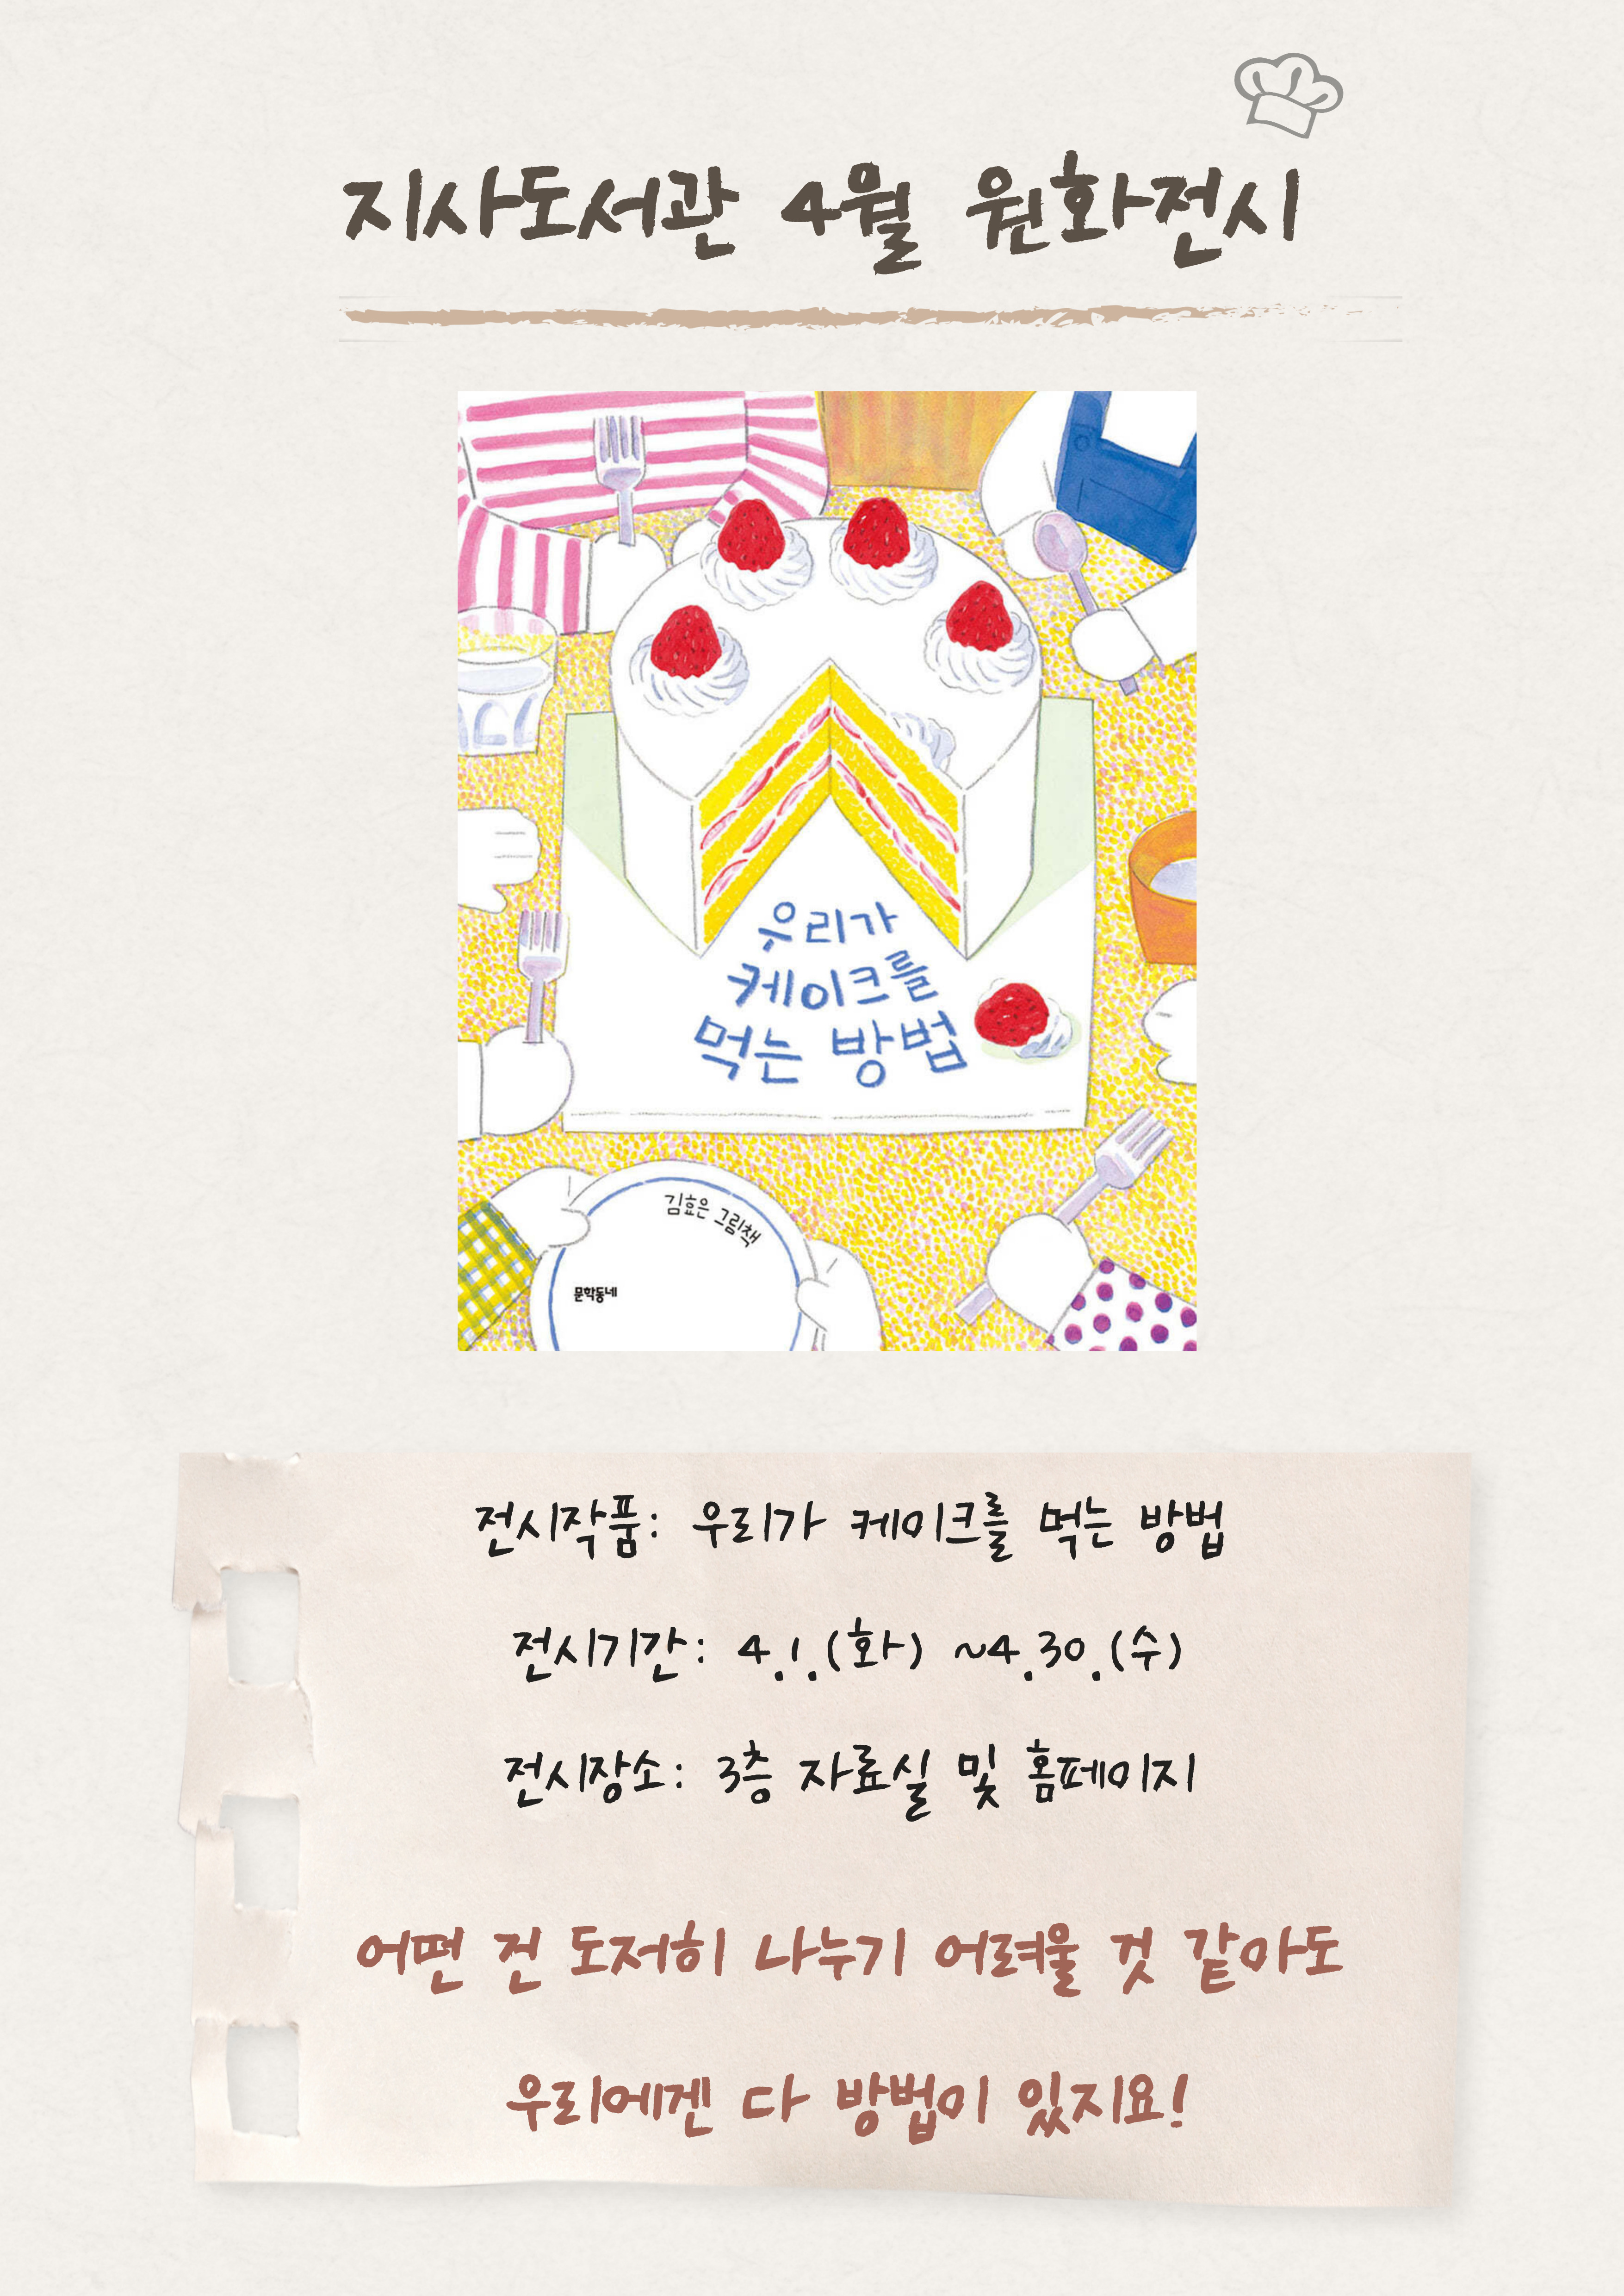 지사도서관 4월 원화전시
우리가
케이크를
먹는 방법
김효은 그림책
문학동네
전시작품: 우리가 케이크를 먹는 방법
전시기간: 4.1.(화) ~4.30.(수)
전시장소: 3층 자료실 및 홈페이지
어떤 건 도저히 나누기 어려울 것 같아도
우리에겐 다 방법이 있지요!